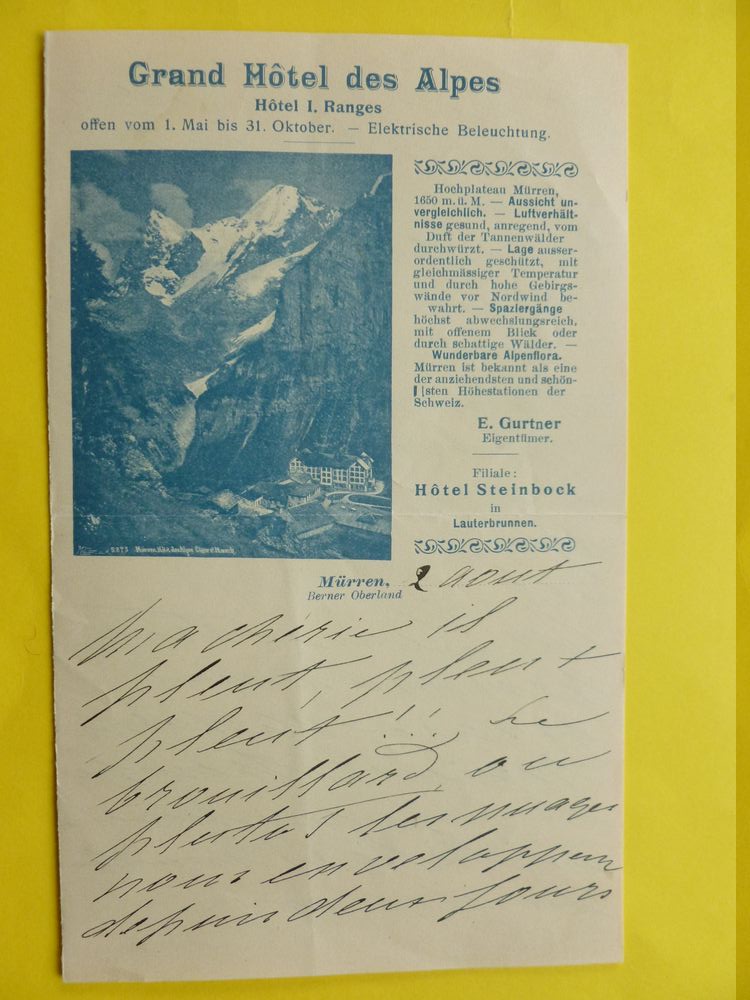 Grand Hôtel des Alpes
Hôtel I. Ranges
offen vom 1. Mai bis 31. Oktober. — Elektrische Beleuchtung.
Hochplateau Mürren,
1650 m. ü. M. — Aussicht un-
vergleichlich. — Luftverhält-
nisse gesund, anregend, vom
Duft der Tannenwälder
durchwürzt. — Lage ausser-
ordentlich geschützt, mit
gleichmässiger Temperatur
und durch hohe Gebirgs-
wände vor Nordwind be-
wahrt. — Spaziergänge
höchst abwechslungsreich,
mit offenem Blick oder
durch schattige Wälder. —
Wunderbare Alpenflora.
Mürren ist bekannt als eine
der anziehendsten und schön-
sten Höhestationen der
Schweiz.
E. Gurtner
Eigentümer.
Filiale:
Hôtel Steinbock
in
Lauterbrunnen.
Mürren, 2 aout
Berner Oberland
Ma cherie il
pleut, pleut
pleut!! Le
brouillard, ou
plutot les nuages
nous enveloppent
depuis deux jours